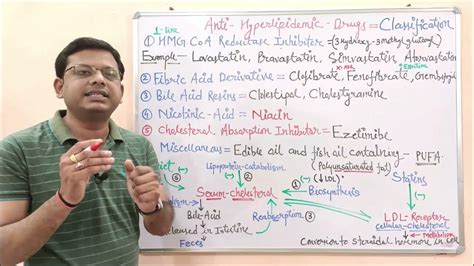 1-line
Anti-Hyperlipidemic-Drugs=Classification
① HMG-CoA Reductase Inhibitor-(3Hydroxy-3methyl glutaryl)
Example- Lovastatin, Pravastatin, Simvastatin, Atorvastatin
② Fibric Acid Derivative = Clofibrate, Fenofibrate, Gembefrozil
③ Bile Acid Resins = Cholestipol, Cholestyramine
④ Nicotinic-Acid = Niacin
⑤ Cholesterol Absorption Inhibitor = Ezetimibe
Miscellaneous = Edible oil and fish oil containing- PUFA
(Polyunsaturated fat)
Lipoprotein-catabolism
(↓LDL)
Statins
⑤
②
①
Serum-cholesterol
Biosynthesis
Bile-Acid
Reabsorption ③
LDL-Receptor
cellular-cholesterol
Metabolism
Released in Intestine
Feces
Conversion to steroidal hormone in